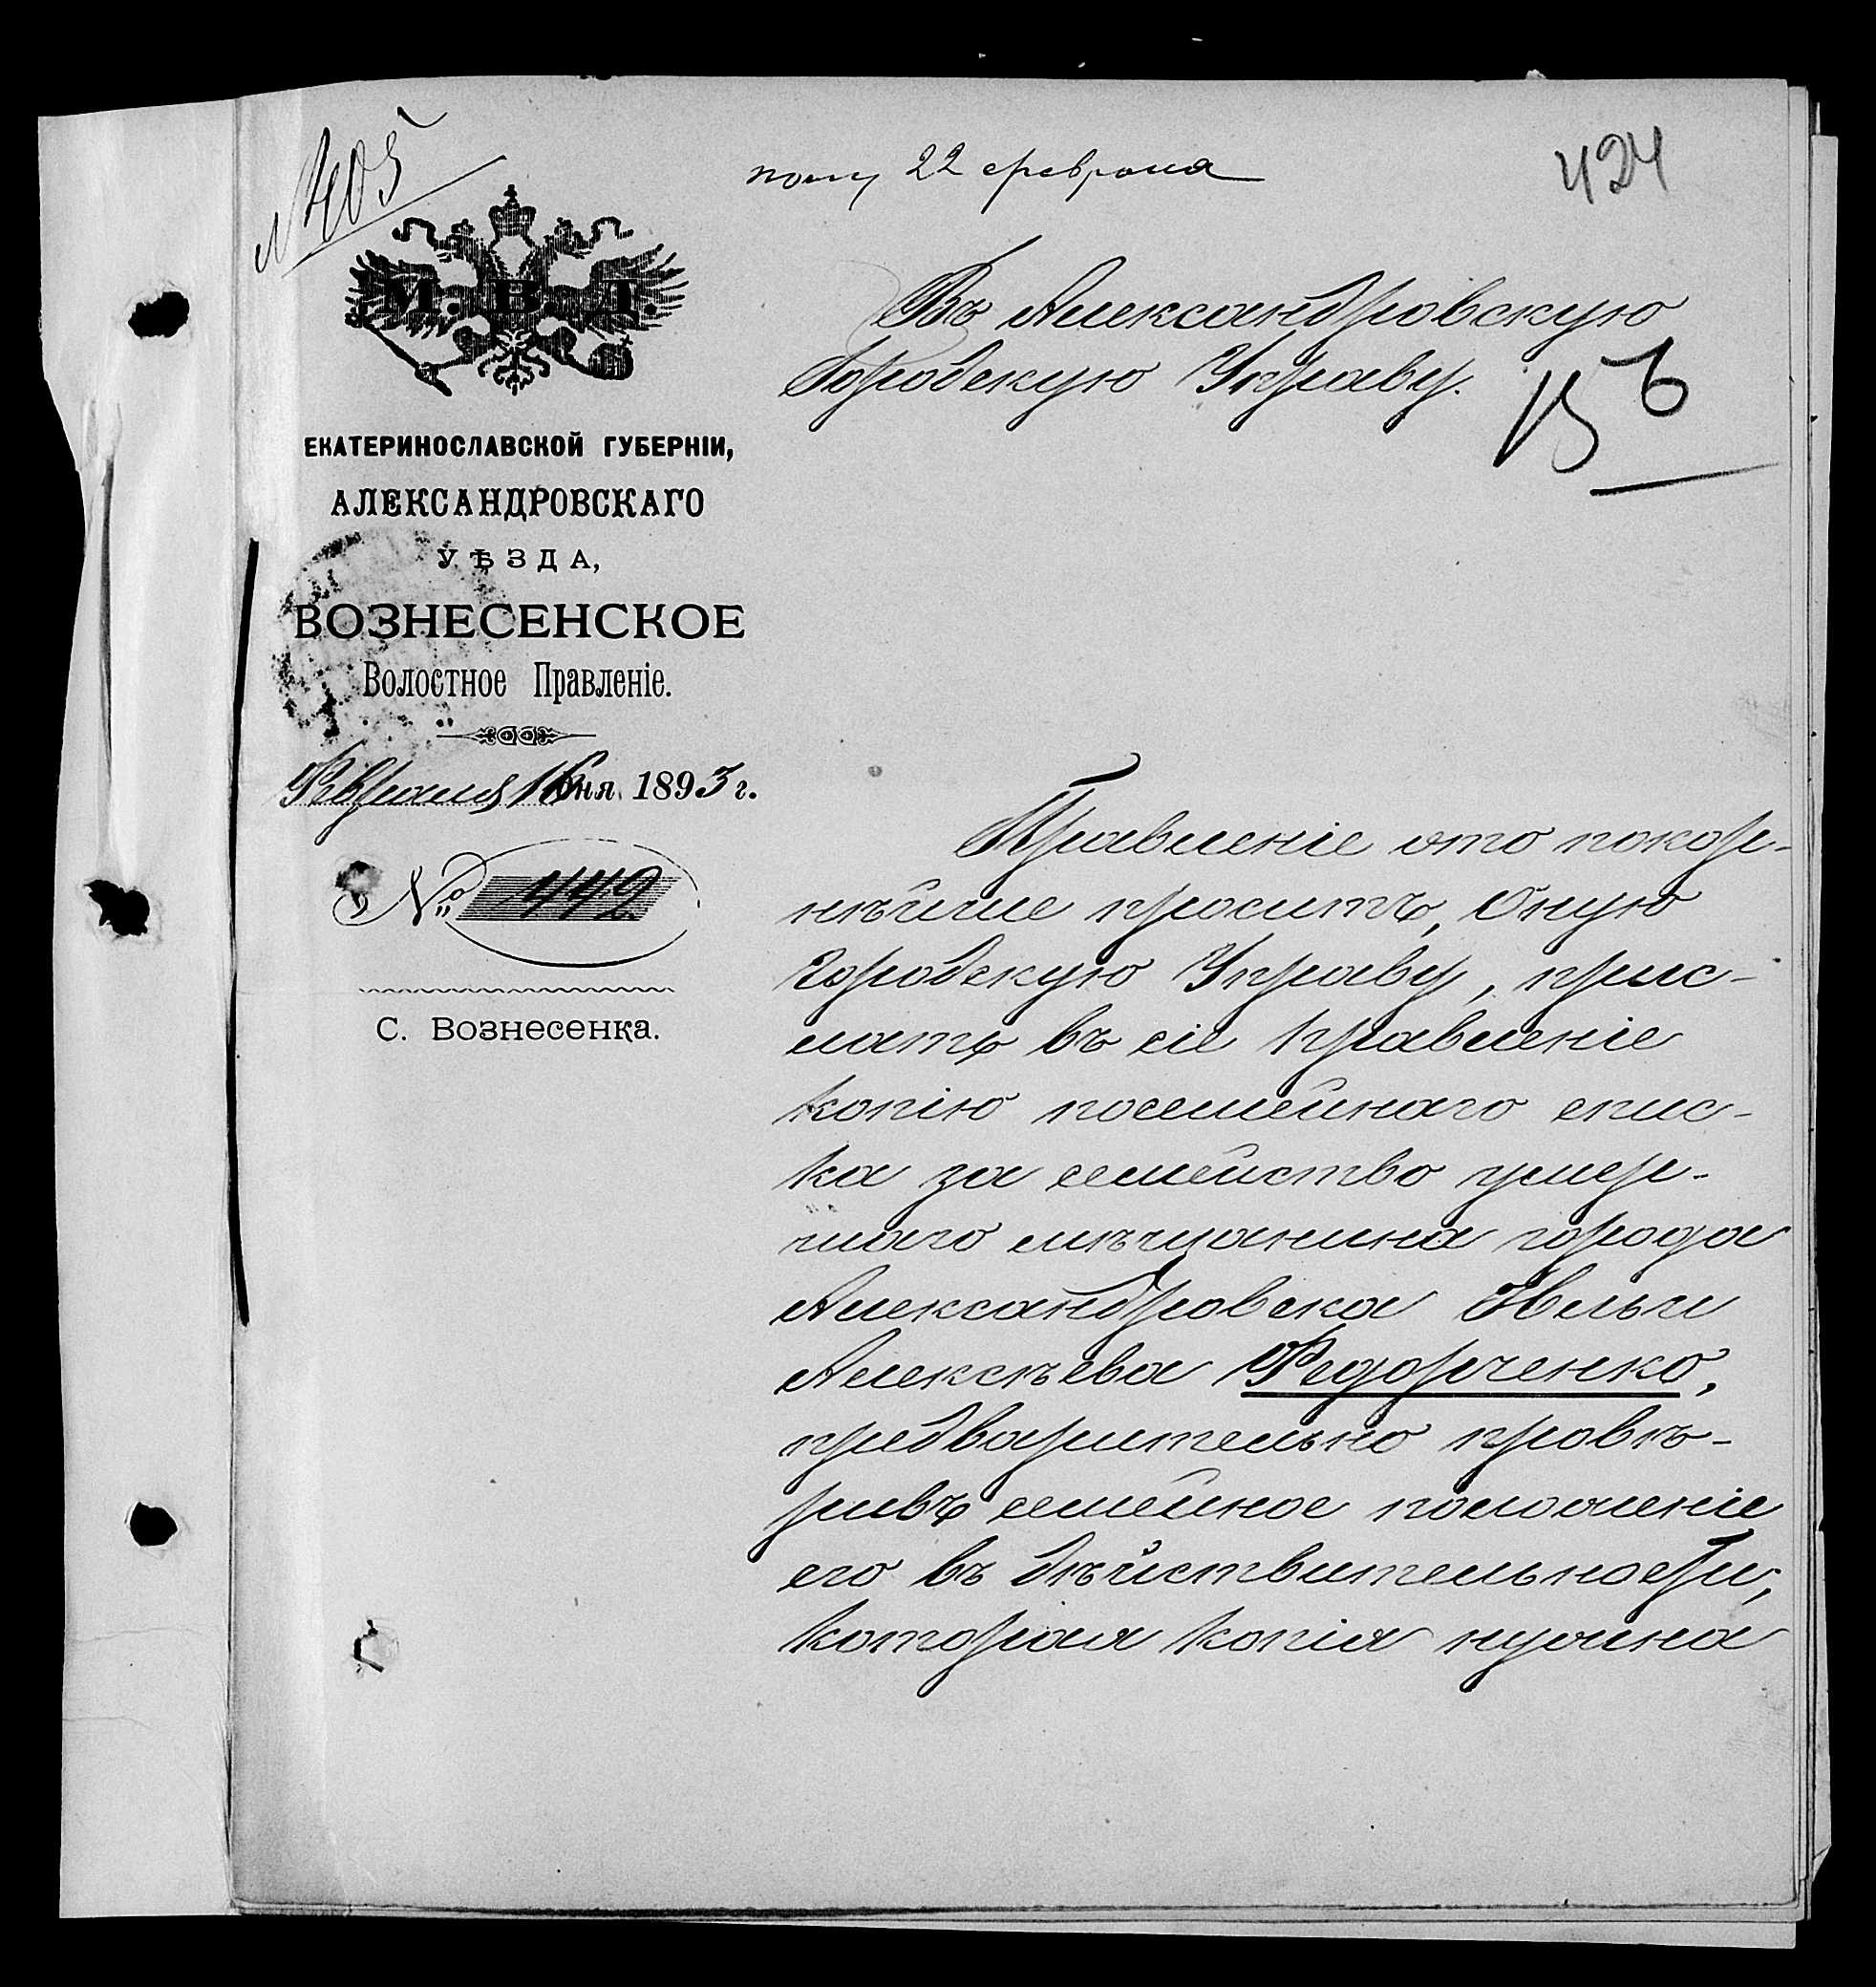 № 405
пол. 22 февраля
424
М. В. Д.
Въ Александровскую
Городскую Управу.
ЕКАТЕРИНОСЛАВСКОЙ ГУБЕРНІИ,
АЛЕКСАНДРОВСКАГО
УѢЗДА,
ВОЗНЕСЕНСКОЕ
Волостное Правленіе.
Февраля 16 дня 1893 г.
№ 442
С. Вознесенка.
Правленіе это покор-
нѣйше проситъ, Оную
городскую Управу, прис-
лать въ сіе Правленіе
копію посемейнаго спис-
ка за семейство умер-
шаго мѣщанина города
Александровска Ильи
Алексѣева Федорченко,
предварительно провѣ-
ривъ семейное положеніе
его въ дѣйствительности,
которая копія нужна